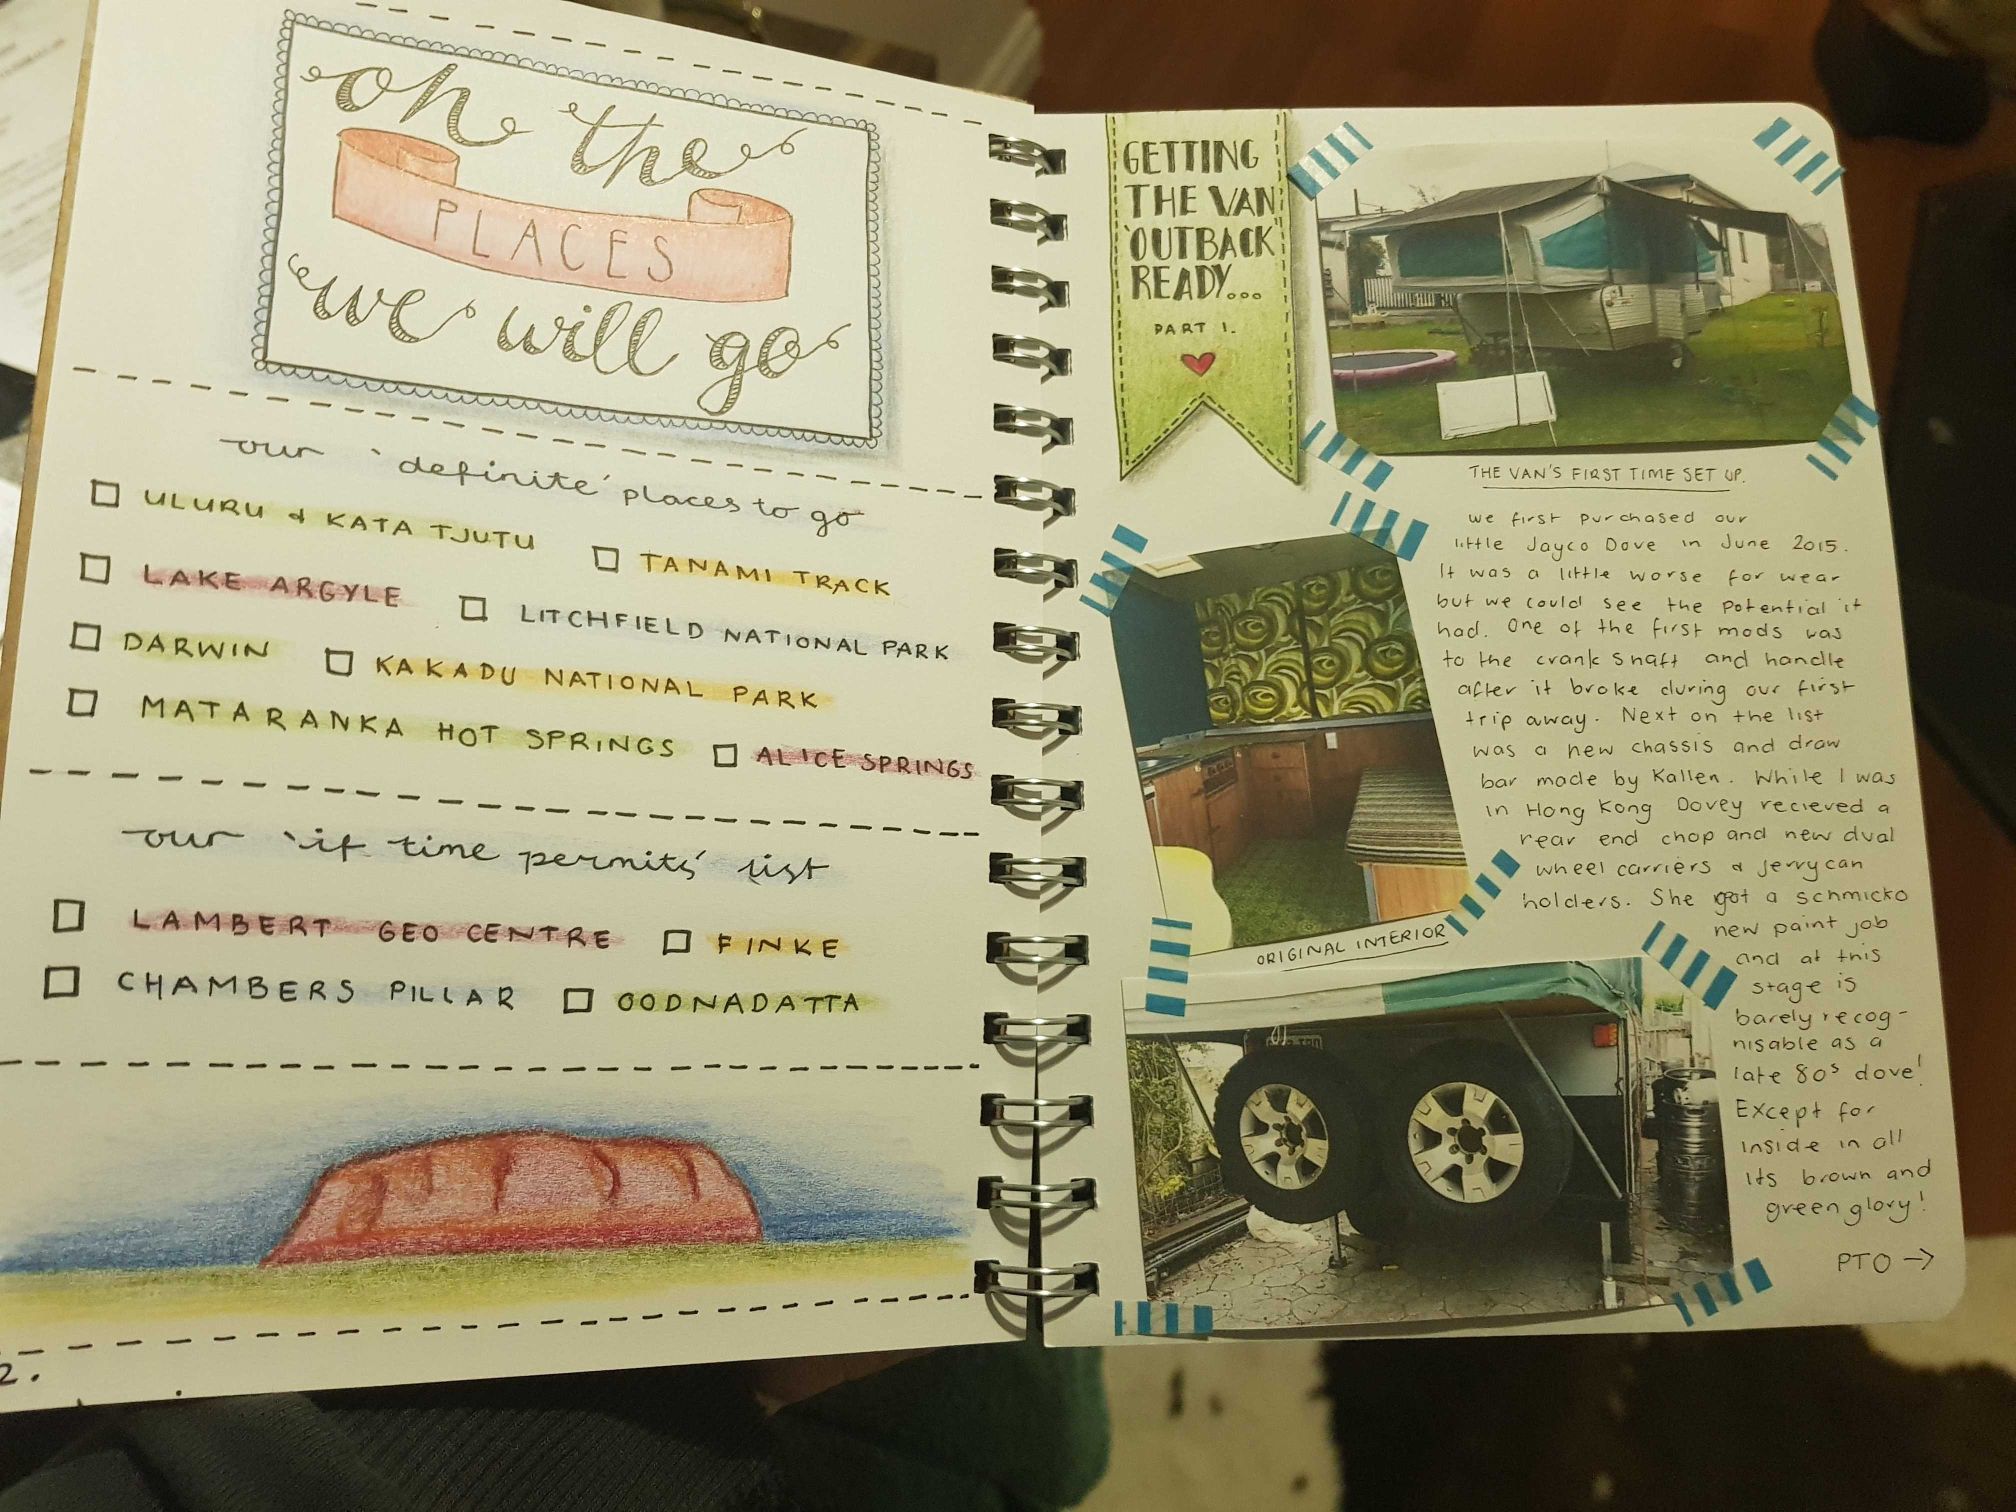 oh the
PLACES
we will go
our 'definite' places to go
ULURU & KATA TJUTU
TANAMI TRACK
LAKE ARGYLE
LITCHFIELD NATIONAL PARK
DARWIN
KAKADU NATIONAL PARK
MATARANKA HOT SPRINGS
ALICE SPRINGS
our 'if time permits' list
LAMBERT GEO CENTRE
FINKE
CHAMBERS PILLAR
OODNADATTA
2.
GETTING
THE VAN
'OUTBACK'
READY...
PART 1.
THE VAN'S FIRST TIME SET UP.
we first purchased our
little Jayco Dove in June 2015.
It was a little worse for wear
but we could see the potential it
had. One of the first mods was
to the crank shaft and handle
after it broke during our first
trip away. Next on the list
was a new chassis and draw
bar made by Kallen. While I was
in Hong Kong Dovey recieved a
rear end chop and new dual
wheel carriers & jerrycan
holders. She got a schmicko
new paint job
and at this
stage is
barely recog-
nisable as a
late 80s dove!
Except for
inside in all
its brown and
green glory!
PTO →
ORIGINAL INTERIOR